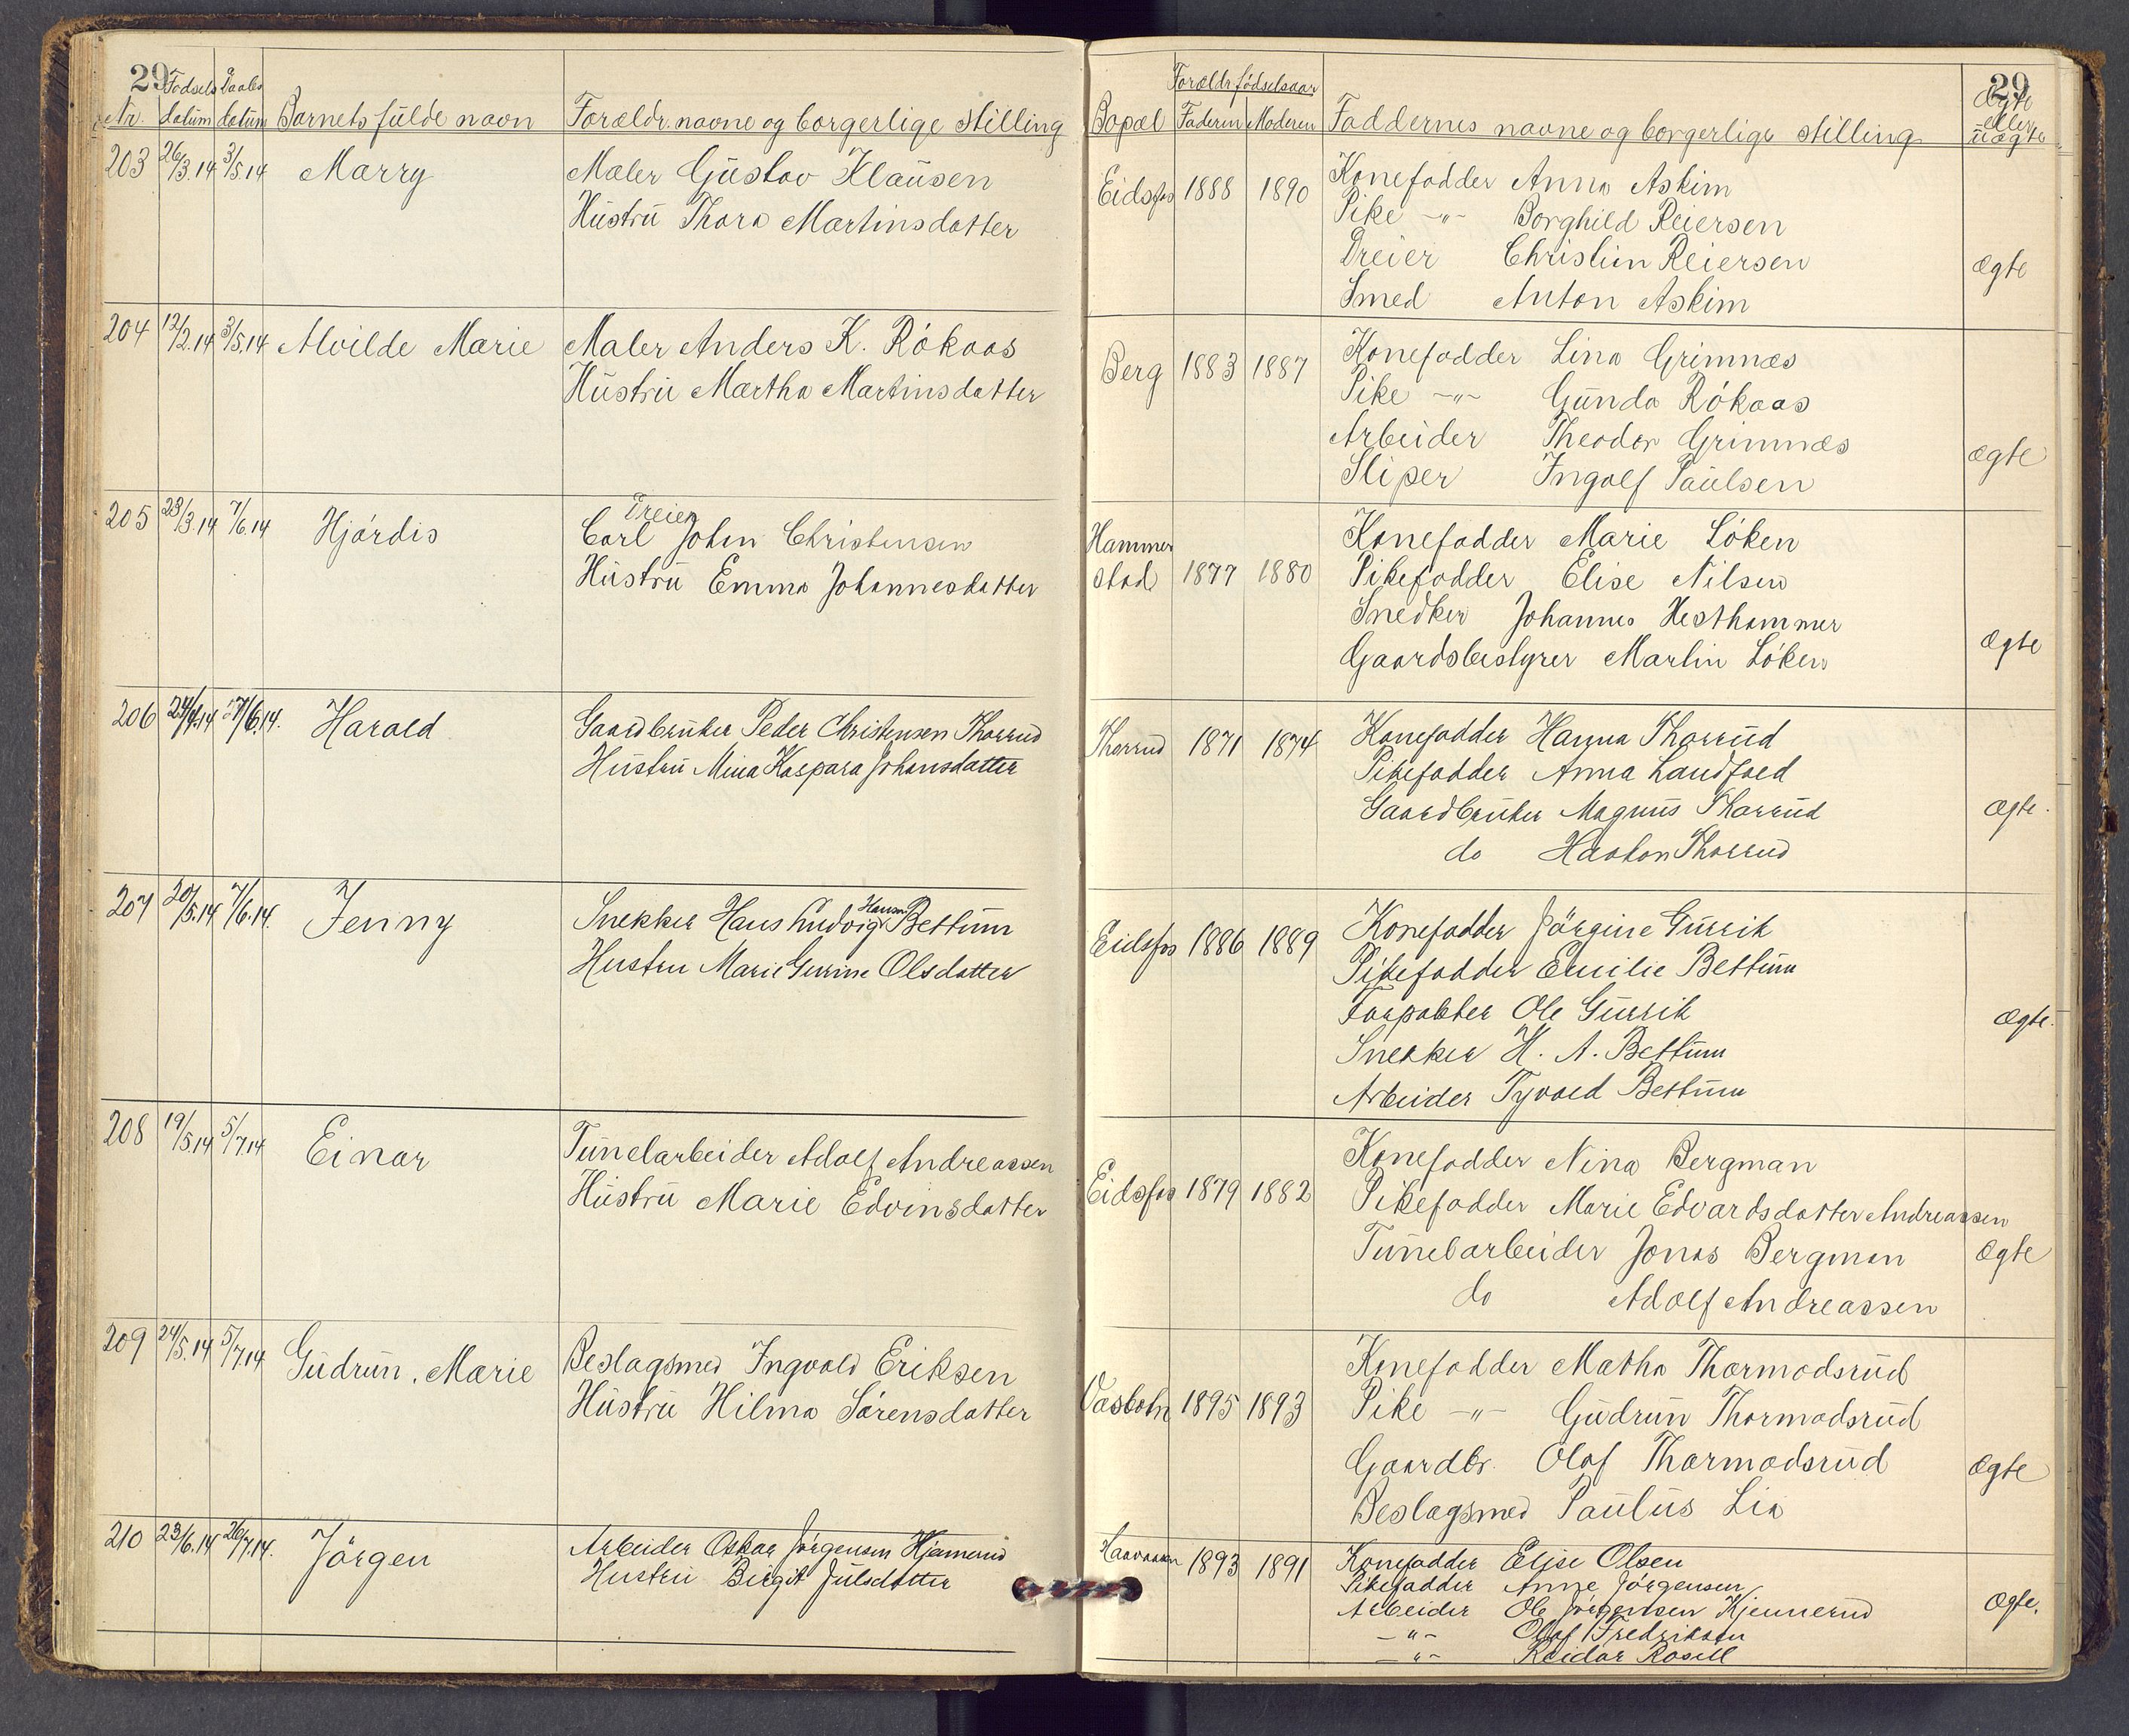 29
Fødsels Daabs
Nr. datum datum Barnets fulde navn Forældr. navne og borgerlige stilling
203 26/3.14 3/5.14 Marry Maler Gustav Klausen
Hustru Thora Martinsdatter
204 12/2.14 3/5.14 Alvilde Marie Maler Anders K. Rókaas
Hustru Martha Martinsdatter
205 23/3.14 7/6.14 Hjórdis Dreier
Carl Johan Christensen
Hustru Emma Johannesdatter
206 24/4.14 7/6.14. Harald Gaardbruker Peder Christensen Thorrud
Hustru Mina Kaspara Johansdatter
207 20/5.14 7/6.14. Jenny Snekker Hans Ludvig Hansen Bettum
Hustru Marie Gurine Olsdatter
208 19/5.14 5/7.14 Einar Tunelarbeider Adolf Andreassen
Hustru Marie Edvinsdatter
209 24/5.14 5/7.14 Gudrun. Marie Beslagsmed Ingvald Eriksen
Hustru Hilma Sórensdatter
210 23/6.14 26/7.14. Jórgen Arbeider Oskar Jórgensen Hjemerud
Hustru Birgit Julsdatter
29
Forældr. fødselsaar Ægte
eller
Bopæl Faderen Moderen Faddernes navne og borgerlige stilling uægte
Eidsfos 1888 1890 Konefadder Anna Askim
Pike -"- Borghild Reiersen
Dreier Christian Reiersen
Smed Anton Askim
Ægte
Berg 1883 1887 Konefadder Lina Grimnæs
Pike -"- Gunda Rókaas
Arbeider Theodor Grimnæs
Sliper Ingolf Paulsen
Ægte
Hammer
stad 1877 1880 Konefadder Marie Lóken
Pikefadder Elise Nilsen
Snedker Johannes Hesthammer
Gaardsbestyrer Martin Lóken
Ægte
Thorrud 1871 1874 Konefadder Hanna Thorrud
Pikefadder Anna Landfald
Gaardbruker Magnus Thorrud
do Haakon Thorrud
Ægte.
Eidsfos 1886 1889 Konefadder Jórgine Gurrik
Pikefadder Emilie Bettum
Forpakter Ole Gurrik
Snekker H. A. Bettum
Arbeider Tyvald Bettum
Ægte.
Eidsfos 1879 1882 Konefadder Nina Bergman
Pikefadder Marie Edvardsdatter Andreassen
Tunelarbeider Jonas Bergman
do Adolf Andreassen
Ægte
Vasbotn 1895 1893 Konefadder Matha Thormodsrud
Pike -"- Gudrun Thormodsrud
Gaardbr. Olaf Thormodsrud
Beslagsmed Paulus Lia
Ægte
1893 1891 Konefadder Elise Olsen
Pikefadder Anne Jórgensen
Arbeider Ole Jórgensen Kjennerud
-"- Olaf Fredriksen
-"- Reidar Rosell
Ægte.